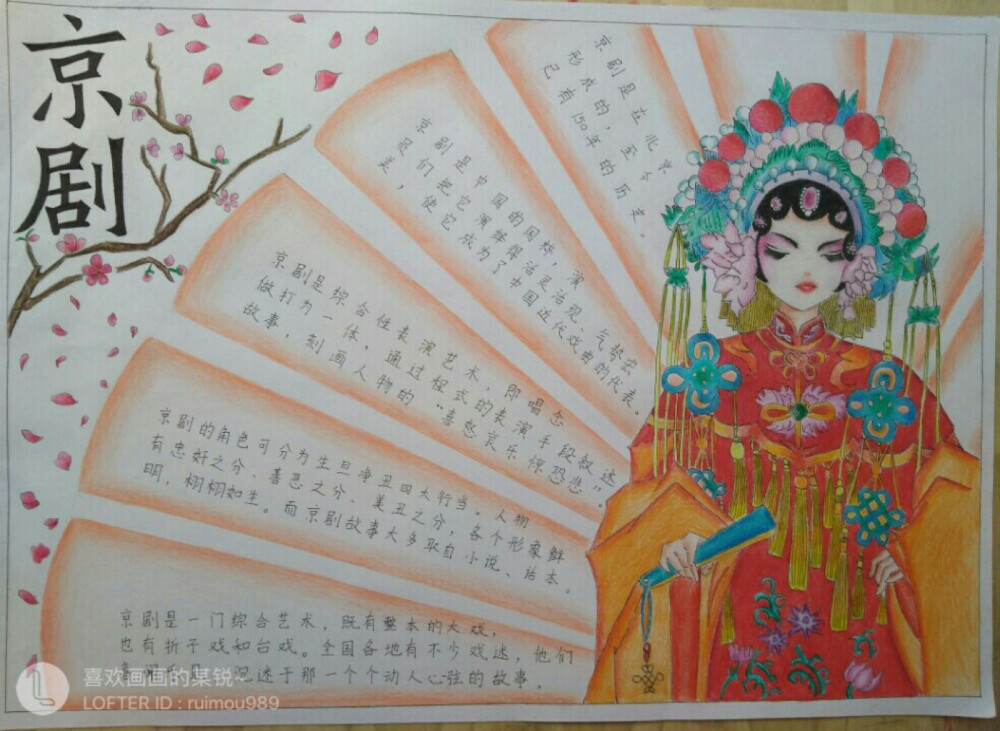 京剧
京剧是在北京
形成的，至今
已有150年的历史。
京剧是中国的国粹，演
员们把它演绎得活灵活现、气势宏
美，使它成为了中国近代戏曲的代表。
京剧是综合性表演艺术，即唱念
做打为一体，通过程式的表演手段叙述
故事，刻画人物的“喜愁哀乐惊恐悲”。
京剧的角色可分为生旦净丑四大行当。人物
有忠奸之分、善恶之分、美丑之分，各个形象鲜
明，栩栩如生。而京剧故事大多取自小说、话本。
京剧是一门综合艺术，既有整本的大戏，
也有折子戏和台戏。全国各地有不少戏迷，他们
沉迷于那一个个动人心弦的故事。
喜欢画画的某锐~
LOFTER ID : ruimou989